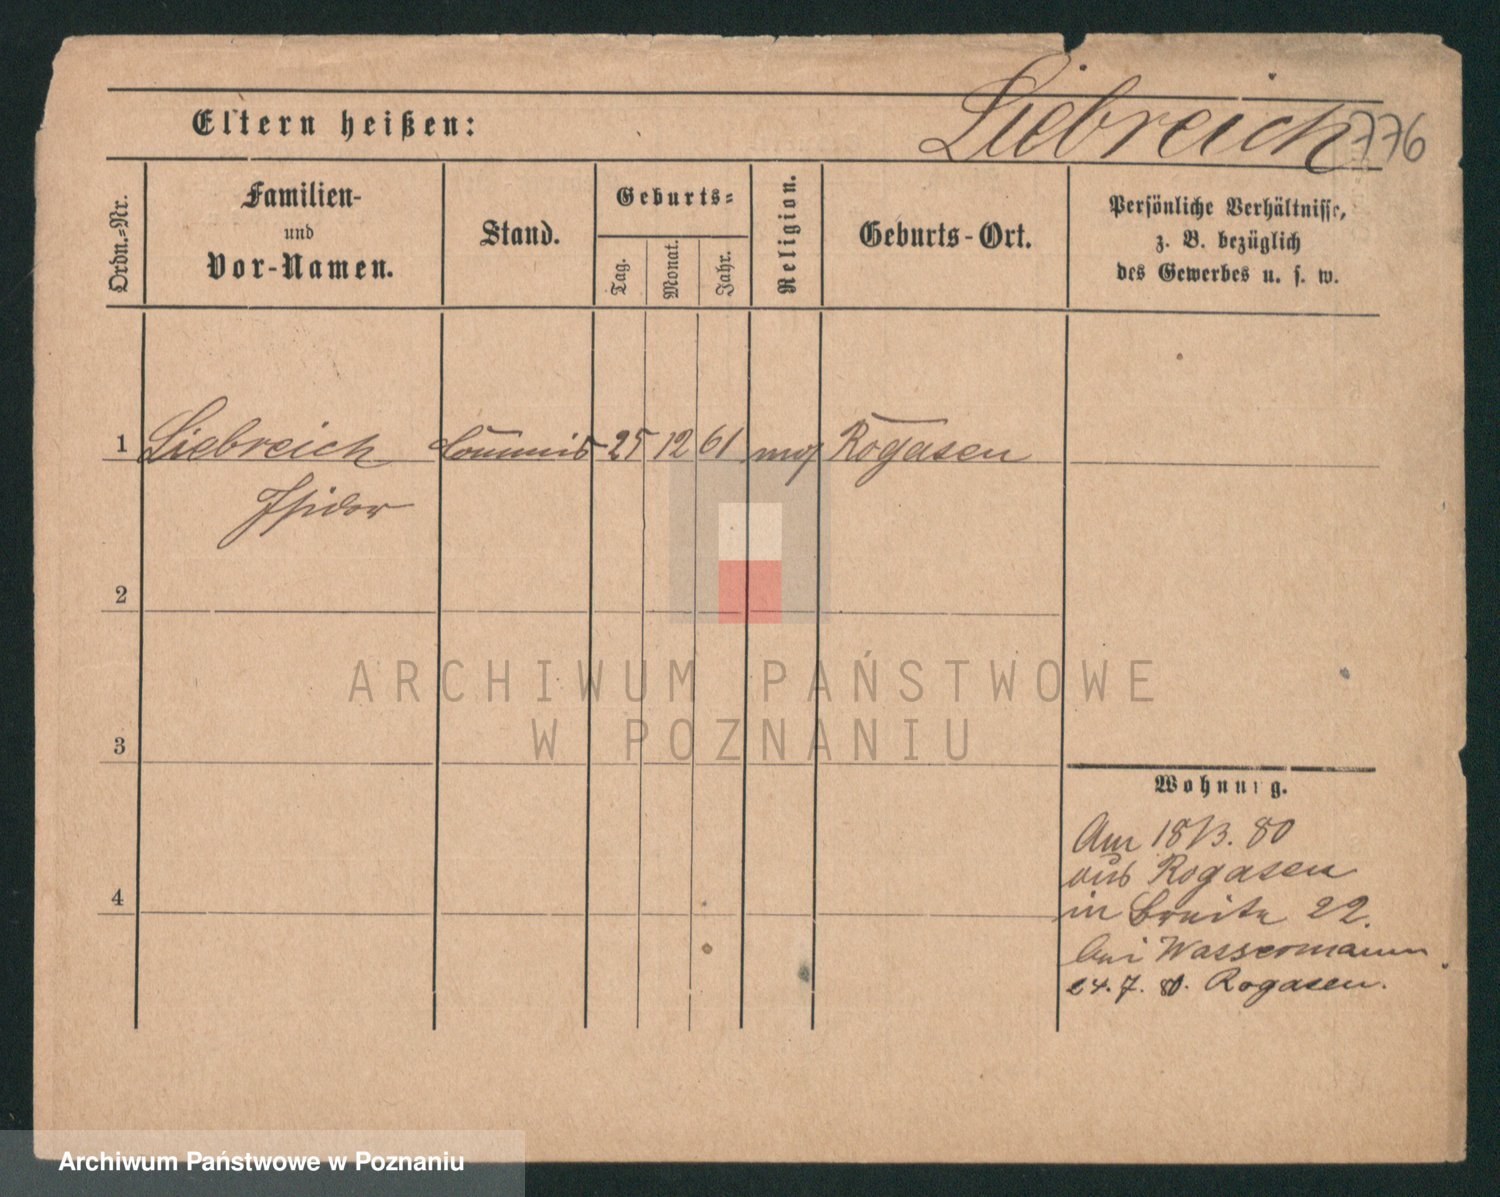 Eltern heißen:
Liebreich
776
Ordn.=Nr.
Familien-
und
Vor-Namen.
Stand.
Geburts=
Tag.
Monat.
Jahr.
Religion.
Geburts-Ort.
Persönliche Verhältnisse,
z. B. bezüglich
des Gewerbes u. s. w.
1
Liebreich
Commis
25
12
61
mos
Rogasen
Isidor
2
3
4
Wohnung.
Am 18/3. 80
aus Rogasen
in Breite 22.
bei Wassermann
24.7.80. Rogasen.
ARCHIWUM PAŃSTWOWE
W POZNANIU
Archiwum Państwowe w Poznaniu